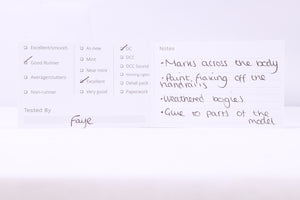 Excellent/smooth
Good Runner
Average/stutters
Non-runner
As new
Mint
Near mint
Excellent
Very good
DC
DCC
DCC Sound
Detail pack
Paperwork
Tested By
Faye
Notes
•Marks across the body
•Paint flaking off the
handrails
•Weathered bogies
•Glue to parts of the
model